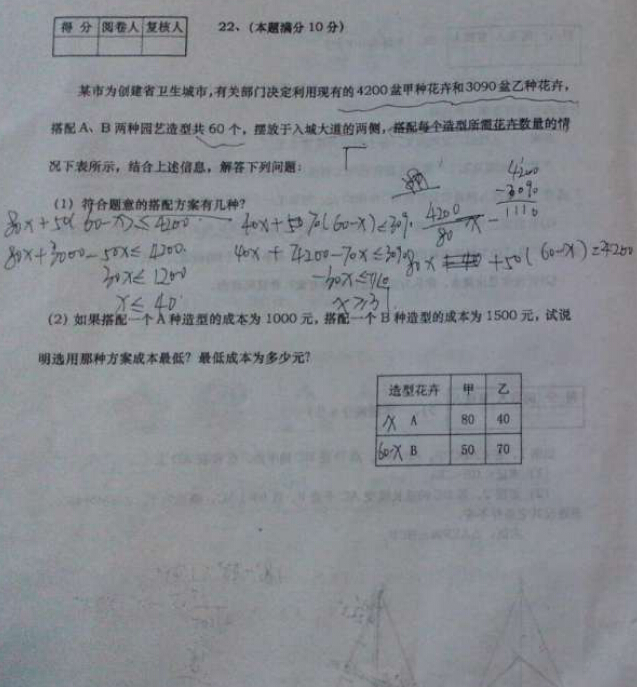 得 分 阅卷人 复核人
22、（本题满分 10 分）
某市为创建省卫生城市，有关部门决定利用现有的 4200 盆甲种花卉和 3090 盆乙种花卉，
搭配 A、B 两种园艺造型共 60 个，摆放于入城大道的两侧，搭配每个造型所需花卉数量的情
况下表所示，结合上述信息，解答下列问题：
4200
-3090
1110
（1）符合题意的搭配方案有几种？
80x+50(60-x)≤4200
40x+70(60-x)≤3090
4200
80
x -
80x+3000-50x≤4200
40x+4200-70x≤3090
80x +50(60-x)=4200
30x≤1200
-30x≤1110
x≤40
x≥37
（2）如果搭配一个 A 种造型的成本为 1000 元，搭配一个 B 种造型的成本为 1500 元，试说
明选用那种方案成本最低？最低成本为多少元？
造型花卉 甲 乙
x A 80 40
60-x B 50 70